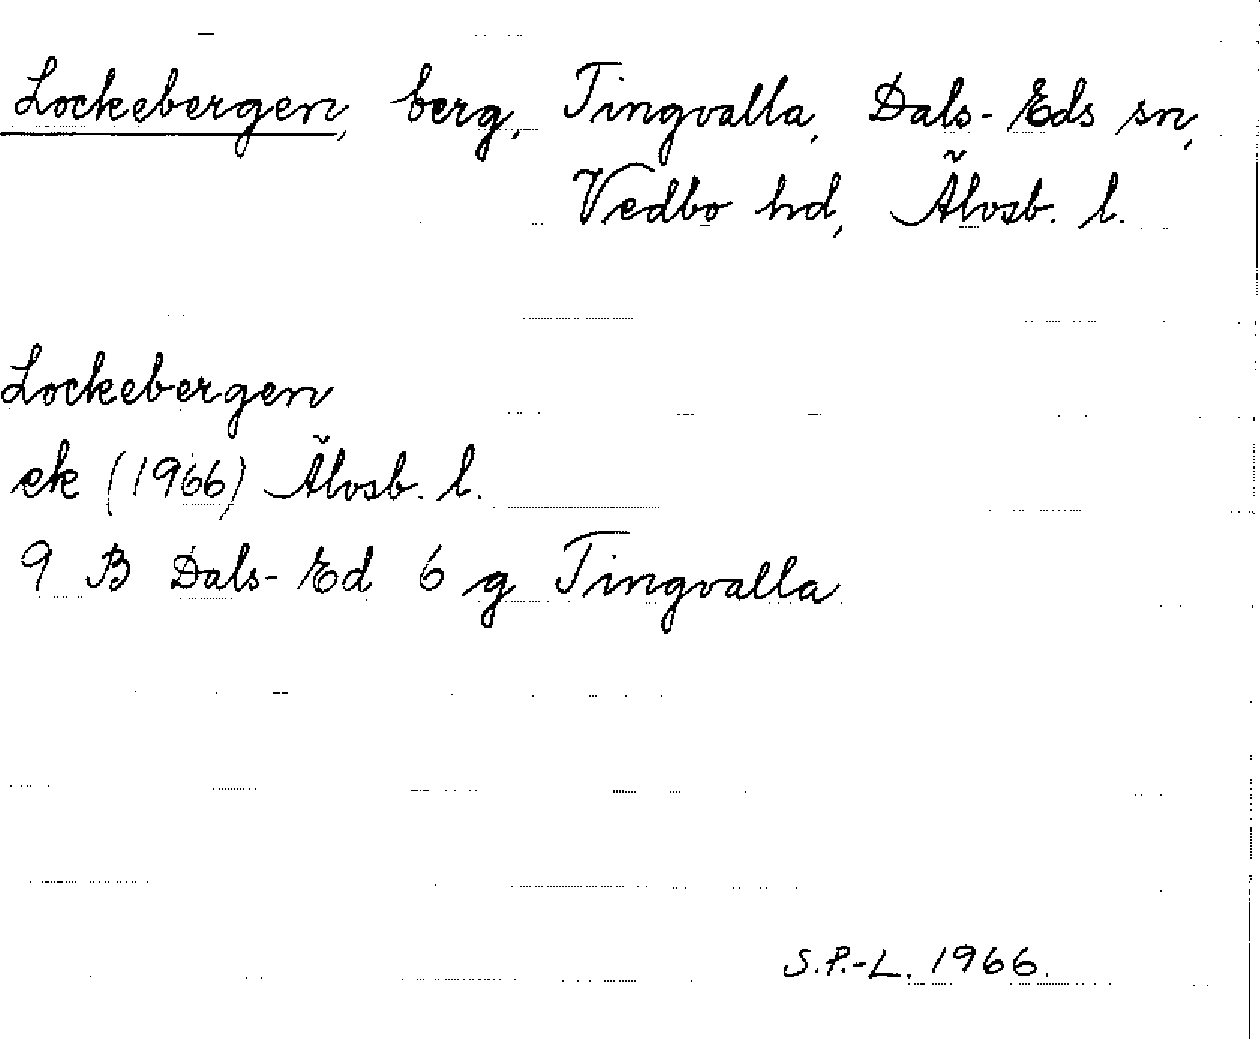 Lockebergen, berg, Tingvalla, Dals-Eds sn,
Vedbo hd, Älvsb. l.
Lockebergen
ek (1966) Älvsb. l.
9 B Dals-Ed 6 g Tingvalla
S.P.-L. 1966.